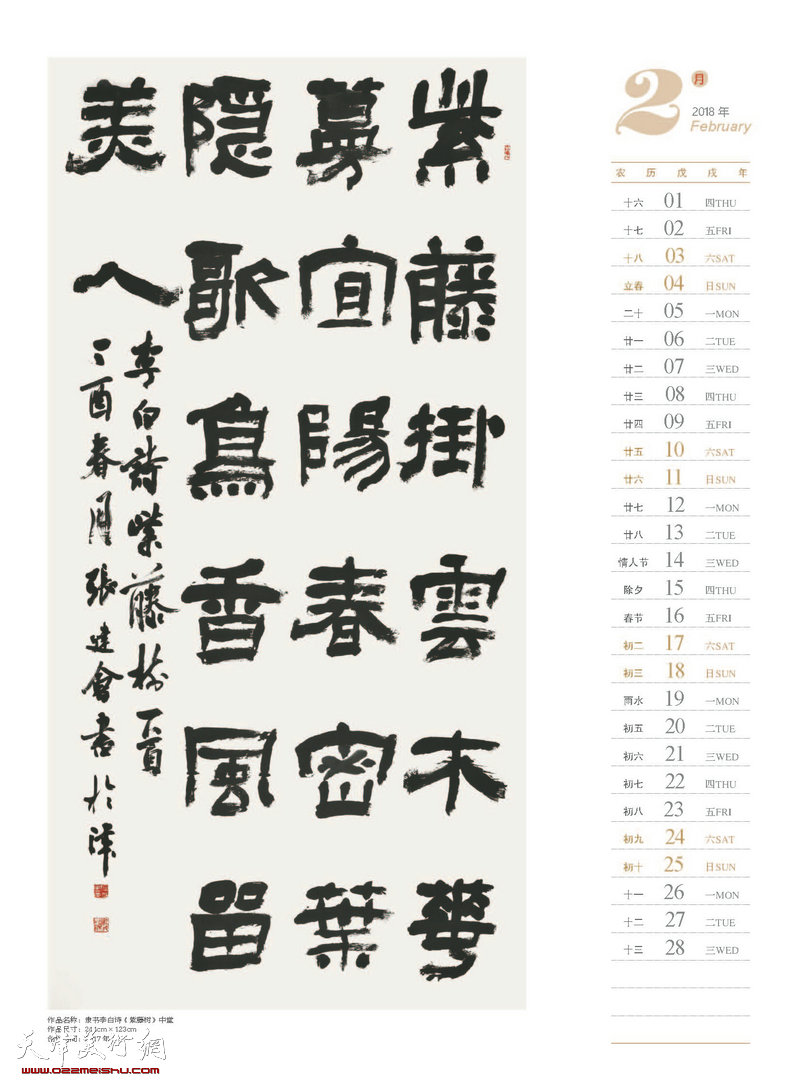 紫藤掛雲木華
蔓宜陽春密葉
隱歌鳥香風留
美人
李白詩紫藤樹一首
丁酉春月張建會書於津
2 月
2018 年
February
农 历 戊 戌 年
十六 01 四THU
十七 02 五FRI
十八 03 六SAT
立春 04 日SUN
二十 05 一MON
廿一 06 二TUE
廿二 07 三WED
廿三 08 四THU
廿四 09 五FRI
廿五 10 六SAT
廿六 11 日SUN
廿七 12 一MON
廿八 13 二TUE
情人节 14 三WED
除夕 15 四THU
春节 16 五FRI
初二 17 六SAT
初三 18 日SUN
雨水 19 一MON
初五 20 二TUE
初六 21 三WED
初七 22 四THU
初八 23 五FRI
初九 24 六SAT
初十 25 日SUN
十一 26 一MON
十二 27 二TUE
十三 28 三WED
作品名称：隶书李白诗《紫藤树》中堂
作品尺寸：241cm×123cm
天津美術網
www.022meishu.com